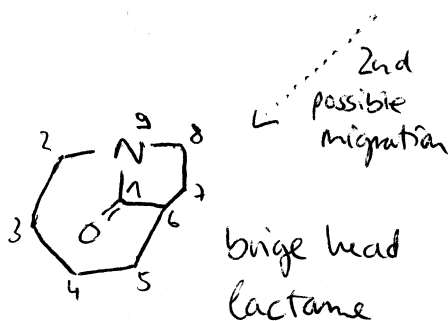 2nd
possible
migration
9
2 N 8
1 7
3 O 6
4 5
brige head
lactame